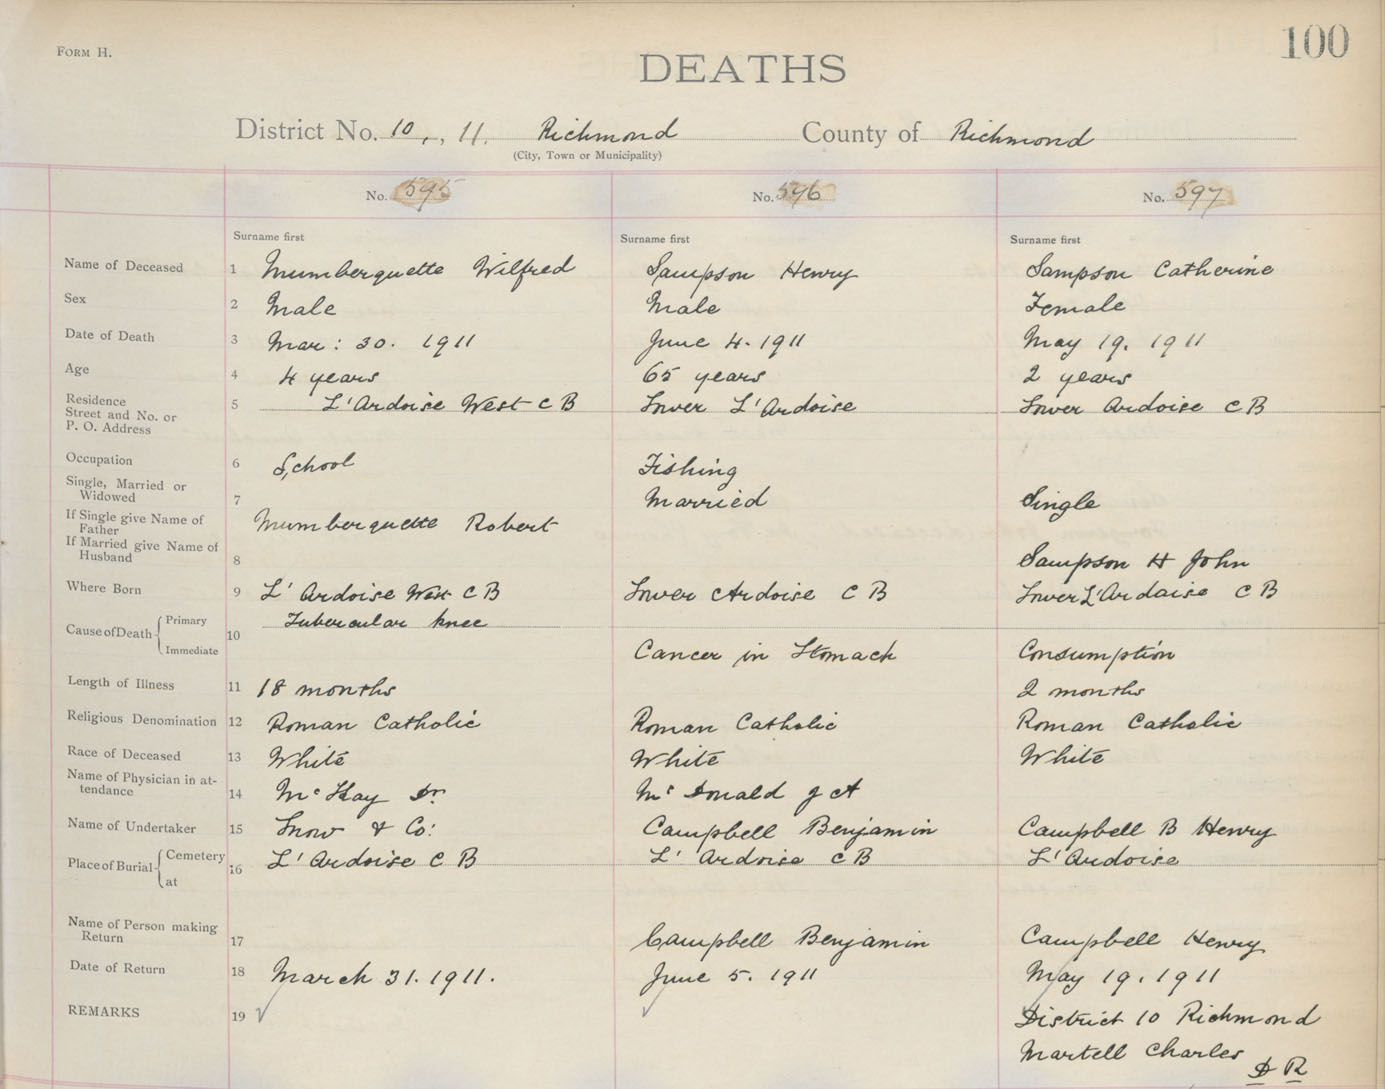 FORM H.
100
DEATHS
District No. 10,, 11. Richmond County of Richmond
(City, Town or Municipality)
No. 595 No. 596 No. 597
Surname first Surname first Surname first
Name of Deceased 1 Mumberquette Wilfred Sampson Henry Sampson Catherine
Sex 2 Male Male Female
Date of Death 3 Mar: 30. 1911 June 4. 1911 May 19. 1911
Age 4 4 years 65 years 2 years
Residence Street and No. or P. O. Address 5 L'Ardoise West C B Lower L'Ardoise Lower Ardoise C B
Occupation 6 School Fishing
Single, Married or Widowed 7 Married Single
If Single give Name of Father Mumberquette Robert
If Married give Name of Husband 8 Sampson H John
Where Born 9 L' Ardoise West C B Lower Ardoise C B Lower L'Ardoise C B
Cause of Death Primary 10 Tubercular knee
Immediate Cancer in Stomach Consumption
Length of Illness 11 18 months 2 months
Religious Denomination 12 Roman Catholic Roman Catholic Roman Catholic
Race of Deceased 13 White White White
Name of Physician in attendance 14 McKay Dr. McDonald J A
Name of Undertaker 15 Snow & Co: Campbell Benjamin Campbell B Henry
Place of Burial Cemetery at 16 L' Ardoise C B L' Ardoise C B L' Ardoise
Name of Person making Return 17 Campbell Benjamin Campbell Henry
Date of Return 18 March 31. 1911. June 5. 1911 May 19. 1911
REMARKS 19 District 10 Richmond
Martell Charles
D R